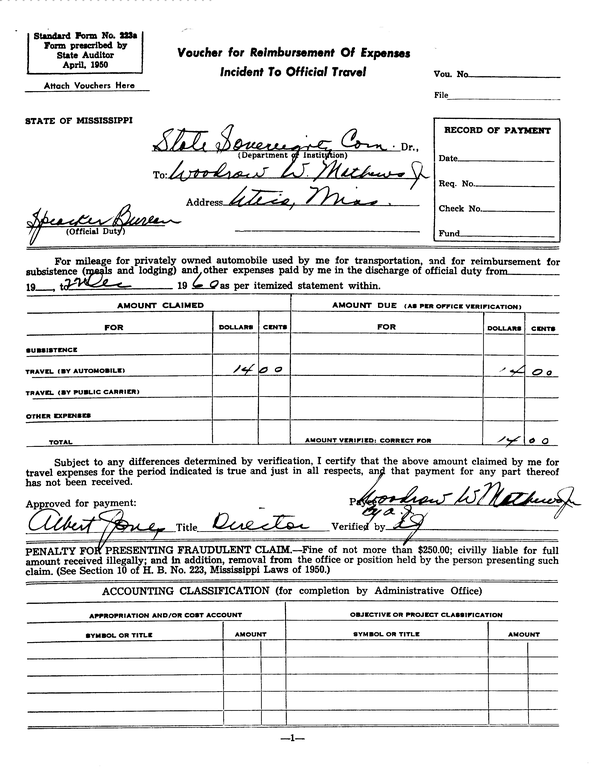 Standard Form No. 223a
Form prescribed by
State Auditor
April, 1950
Attach Vouchers Here
Voucher for Reimbursement Of Expenses
Incident To Official Travel
Vou. No.
File
STATE OF MISSISSIPPI
State Sovereignty Com. Dr.,
(Department of Institution)
To: Woodrow W. Mathews Jr
Address Utica, Miss.
Speacker Bureau
(Official Duty)
RECORD OF PAYMENT
Date
Req. No.
Check No.
Fund
For mileage for privately owned automobile used by me for transportation, and for reimbursement for
subsistence (meals and lodging) and other expenses paid by me in the discharge of official duty from
19 , to 2 Dec 1960 as per itemized statement within.
AMOUNT CLAIMED AMOUNT DUE (AS PER OFFICE VERIFICATION)
FOR DOLLARS CENTS FOR DOLLARS CENTS
SUBSISTENCE
TRAVEL (BY AUTOMOBILE) 14 00 14 00
TRAVEL (BY PUBLIC CARRIER)
OTHER EXPENSES
TOTAL AMOUNT VERIFIED: CORRECT FOR 14 00
Subject to any differences determined by verification, I certify that the above amount claimed by me for
travel expenses for the period indicated is true and just in all respects, and that payment for any part thereof
has not been received.
Approved for payment: Woodrow W Mathews Jr
by aj
Albert Jones Title Director Verified by
PENALTY FOR PRESENTING FRAUDULENT CLAIM.—Fine of not more than $250.00; civilly liable for full
amount received illegally; and in addition, removal from the office or position held by the person presenting such
claim. (See Section 10 of H. B. No. 223, Mississippi Laws of 1950.)
ACCOUNTING CLASSIFICATION (for completion by Administrative Office)
APPROPRIATION AND/OR COST ACCOUNT OBJECTIVE OR PROJECT CLASSIFICATION
SYMBOL OR TITLE AMOUNT SYMBOL OR TITLE AMOUNT
—1—